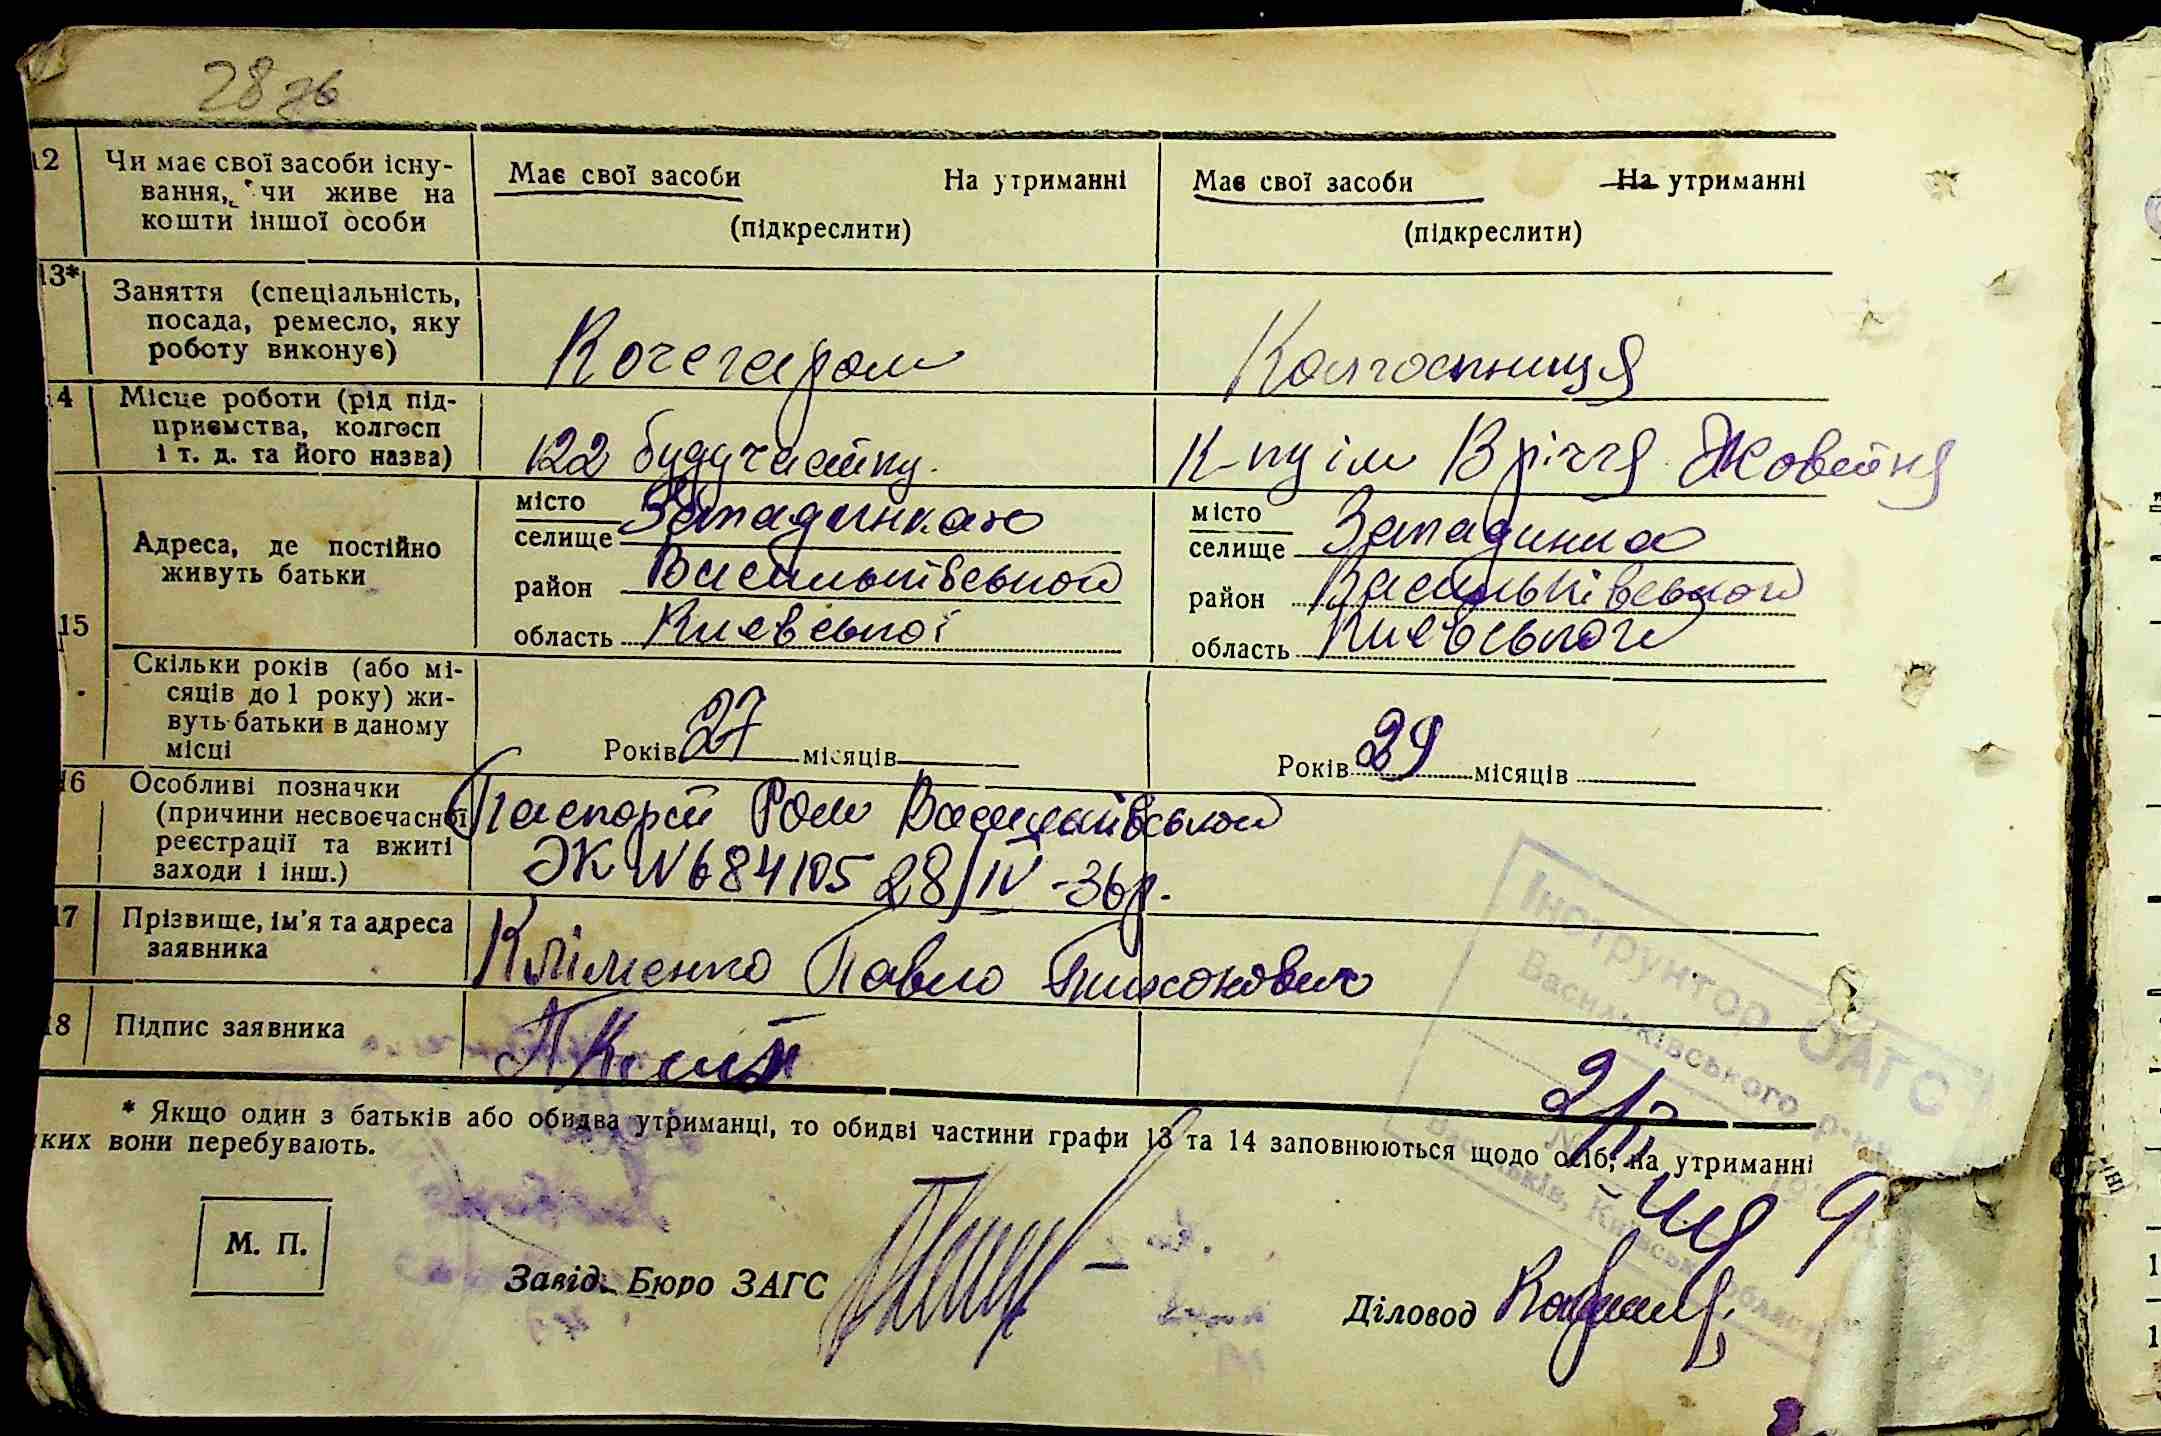 28 зв
12 Чи має свої засоби існу-
вання, чи живе на
кошти іншої особи
Має свої засоби На утриманні
(підкреслити)
Має свої засоби На утриманні
(підкреслити)
13* Заняття (спеціальність,
посада, ремесло, яку
роботу виконує)
Кочегаром
Колгоспниця
14 Місце роботи (рід під-
приємства, колгосп
і т. д. та його назва)
122 будучастку.
К-пу ім В річчя Жовтня
15 Адреса, де постійно
живуть батьки
місто
селище Западинкою
район Васильківської
область Києвської
місто
селище Западинка
район Васильківської
область Києвської
Скільки років (або мі-
сяців до 1 року) жи-
вуть батьки в даному
місці
Років 27 місяців
Років 29 місяців
16 Особливі позначки
(причини несвоєчасної
реєстрації та вжиті
заходи і інш.)
Паспорт Ром Васильківської
ЭЖ №684105 28/IV-36р.
17 Прізвище, ім'я та адреса
заявника
Кліменко Павло Тихонович
18 Підпис заявника
* Якщо один з батьків або обидва утриманці, то обидві частини графи 13 та 14 заповнюються щодо осіб, на утриманні
яких вони перебувають.
М. П.
Завід. Бюро ЗАГС
Діловод
Інструктор ЗАГС
Васильківського р-ну
№
Васильків, Київської області